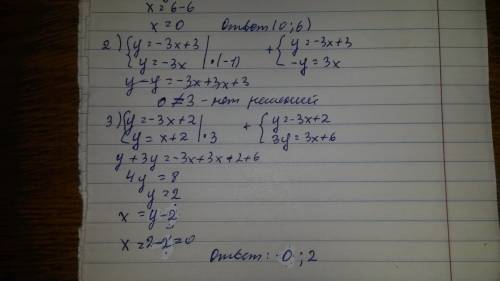 x=6-6
x=0 Ответ (0;6)
2) {y=-3x+3 {y=-3x |·(-1) + {y=-3x+3 {-y=3x
y-y=-3x+3x+3
0≠3 - нет решений
3) {y=-3x+2 {y=x+2 |·3 + {y=-3x+2 {3y=3x+6
y+3y=-3x+3x+2+6
4y=8
y=2
x=y-2
x=2-2=0
Ответ: 0;2